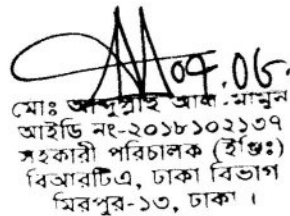 04.06.
মোঃ আব্দুল্লাহ আল-মামুন
আইডি নং-২০১৮১০২১৩৭
সহকারী পরিচালক (ইঞ্জিঃ)
বিআরটিএ, ঢাকা বিভাগ
মিরপুর-১৩, ঢাকা ।